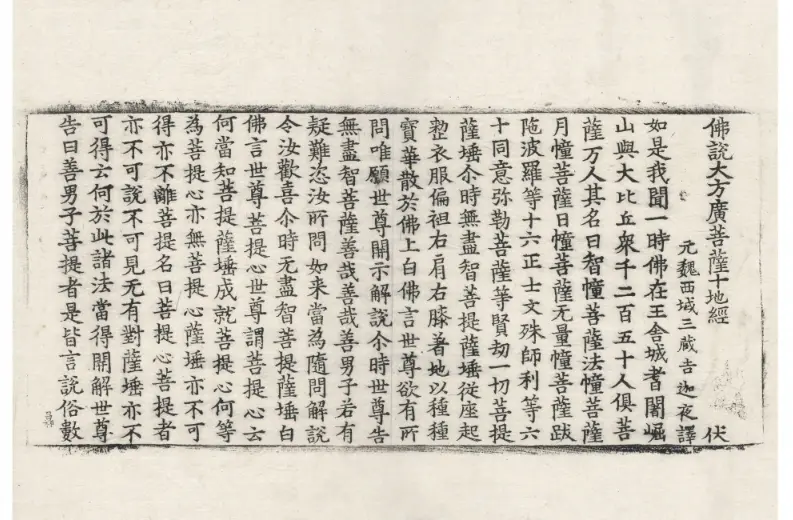 佛說大方廣菩薩十地經 伏
元魏西域三藏吉迦夜譯
如是我聞一時佛在王舍城耆闍崛
山與大比丘衆千二百五十人俱菩
薩万人其名曰智憧菩薩法憧菩薩
月憧菩薩日憧菩薩无量憧菩薩跋
陁波羅等十六正士文殊師利等六
十同意弥勒菩薩等賢劫一切菩提
薩埵尒時無盡智菩提薩埵從座起
整衣服偏袒右肩右膝著地以種種
寶華散於佛上白佛言世尊欲有所
問唯願世尊開示解說尒時世尊告
無盡智菩薩善哉善哉善男子若有
疑難恣汝所問如来當為隨問解說
令汝歡喜尒時无盡智菩提薩埵白
佛言世尊菩提心世尊謂菩提心云
何當知菩提薩埵成就菩提心何等
為菩提心亦無菩提心薩埵亦不可
得亦不離菩提名曰菩提心菩提者
亦不可說不可見无有對薩埵亦不
可得云何於此諸法當得開解世尊
告曰善男子菩提者是皆言說俗數